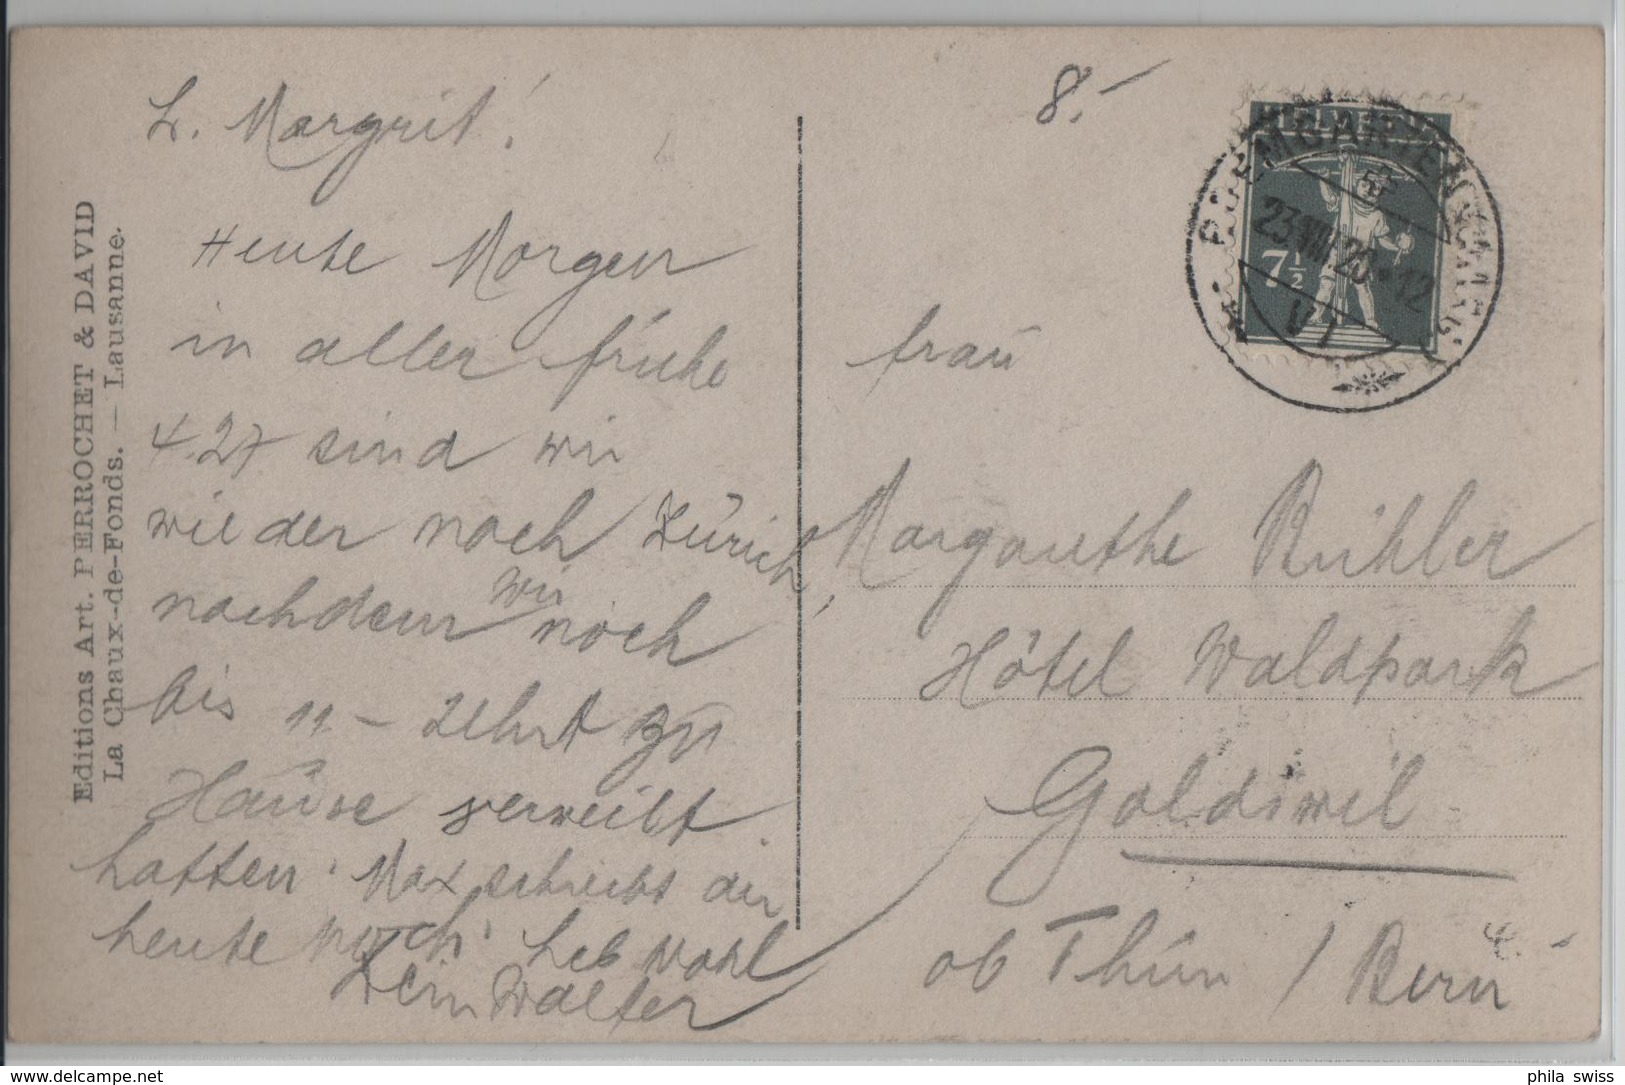 Editions Art. PERROCHET & DAVID
La Chaux-de-Fonds. — Lausanne.
L. Margrit!
Heute Morgen
in aller frühe
4.27 sind wir
wieder nach Zürich,
nachdem wir noch
bis 11 - zu
Hause verweilt
hatten. Max schreibt dir
heute noch. Leb wohl
Dein Walter
8.-
HELVETIA
7 1/2
23.VIII.20.-12
VI
Frau
Margarethe Bühler
Hôtel Waldpark
Goldiwil
ob Thun / Bern
4.-
phila swiss